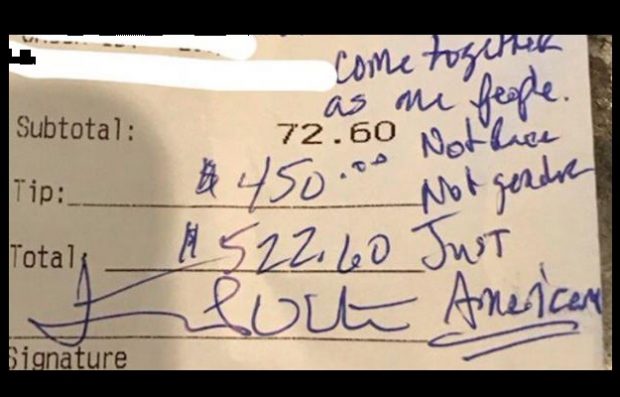 come together
as one people.
Subtotal: 72.60 Not Race
Tip: $450.00 Not gender
Total: $522.60 Just
American
Signature